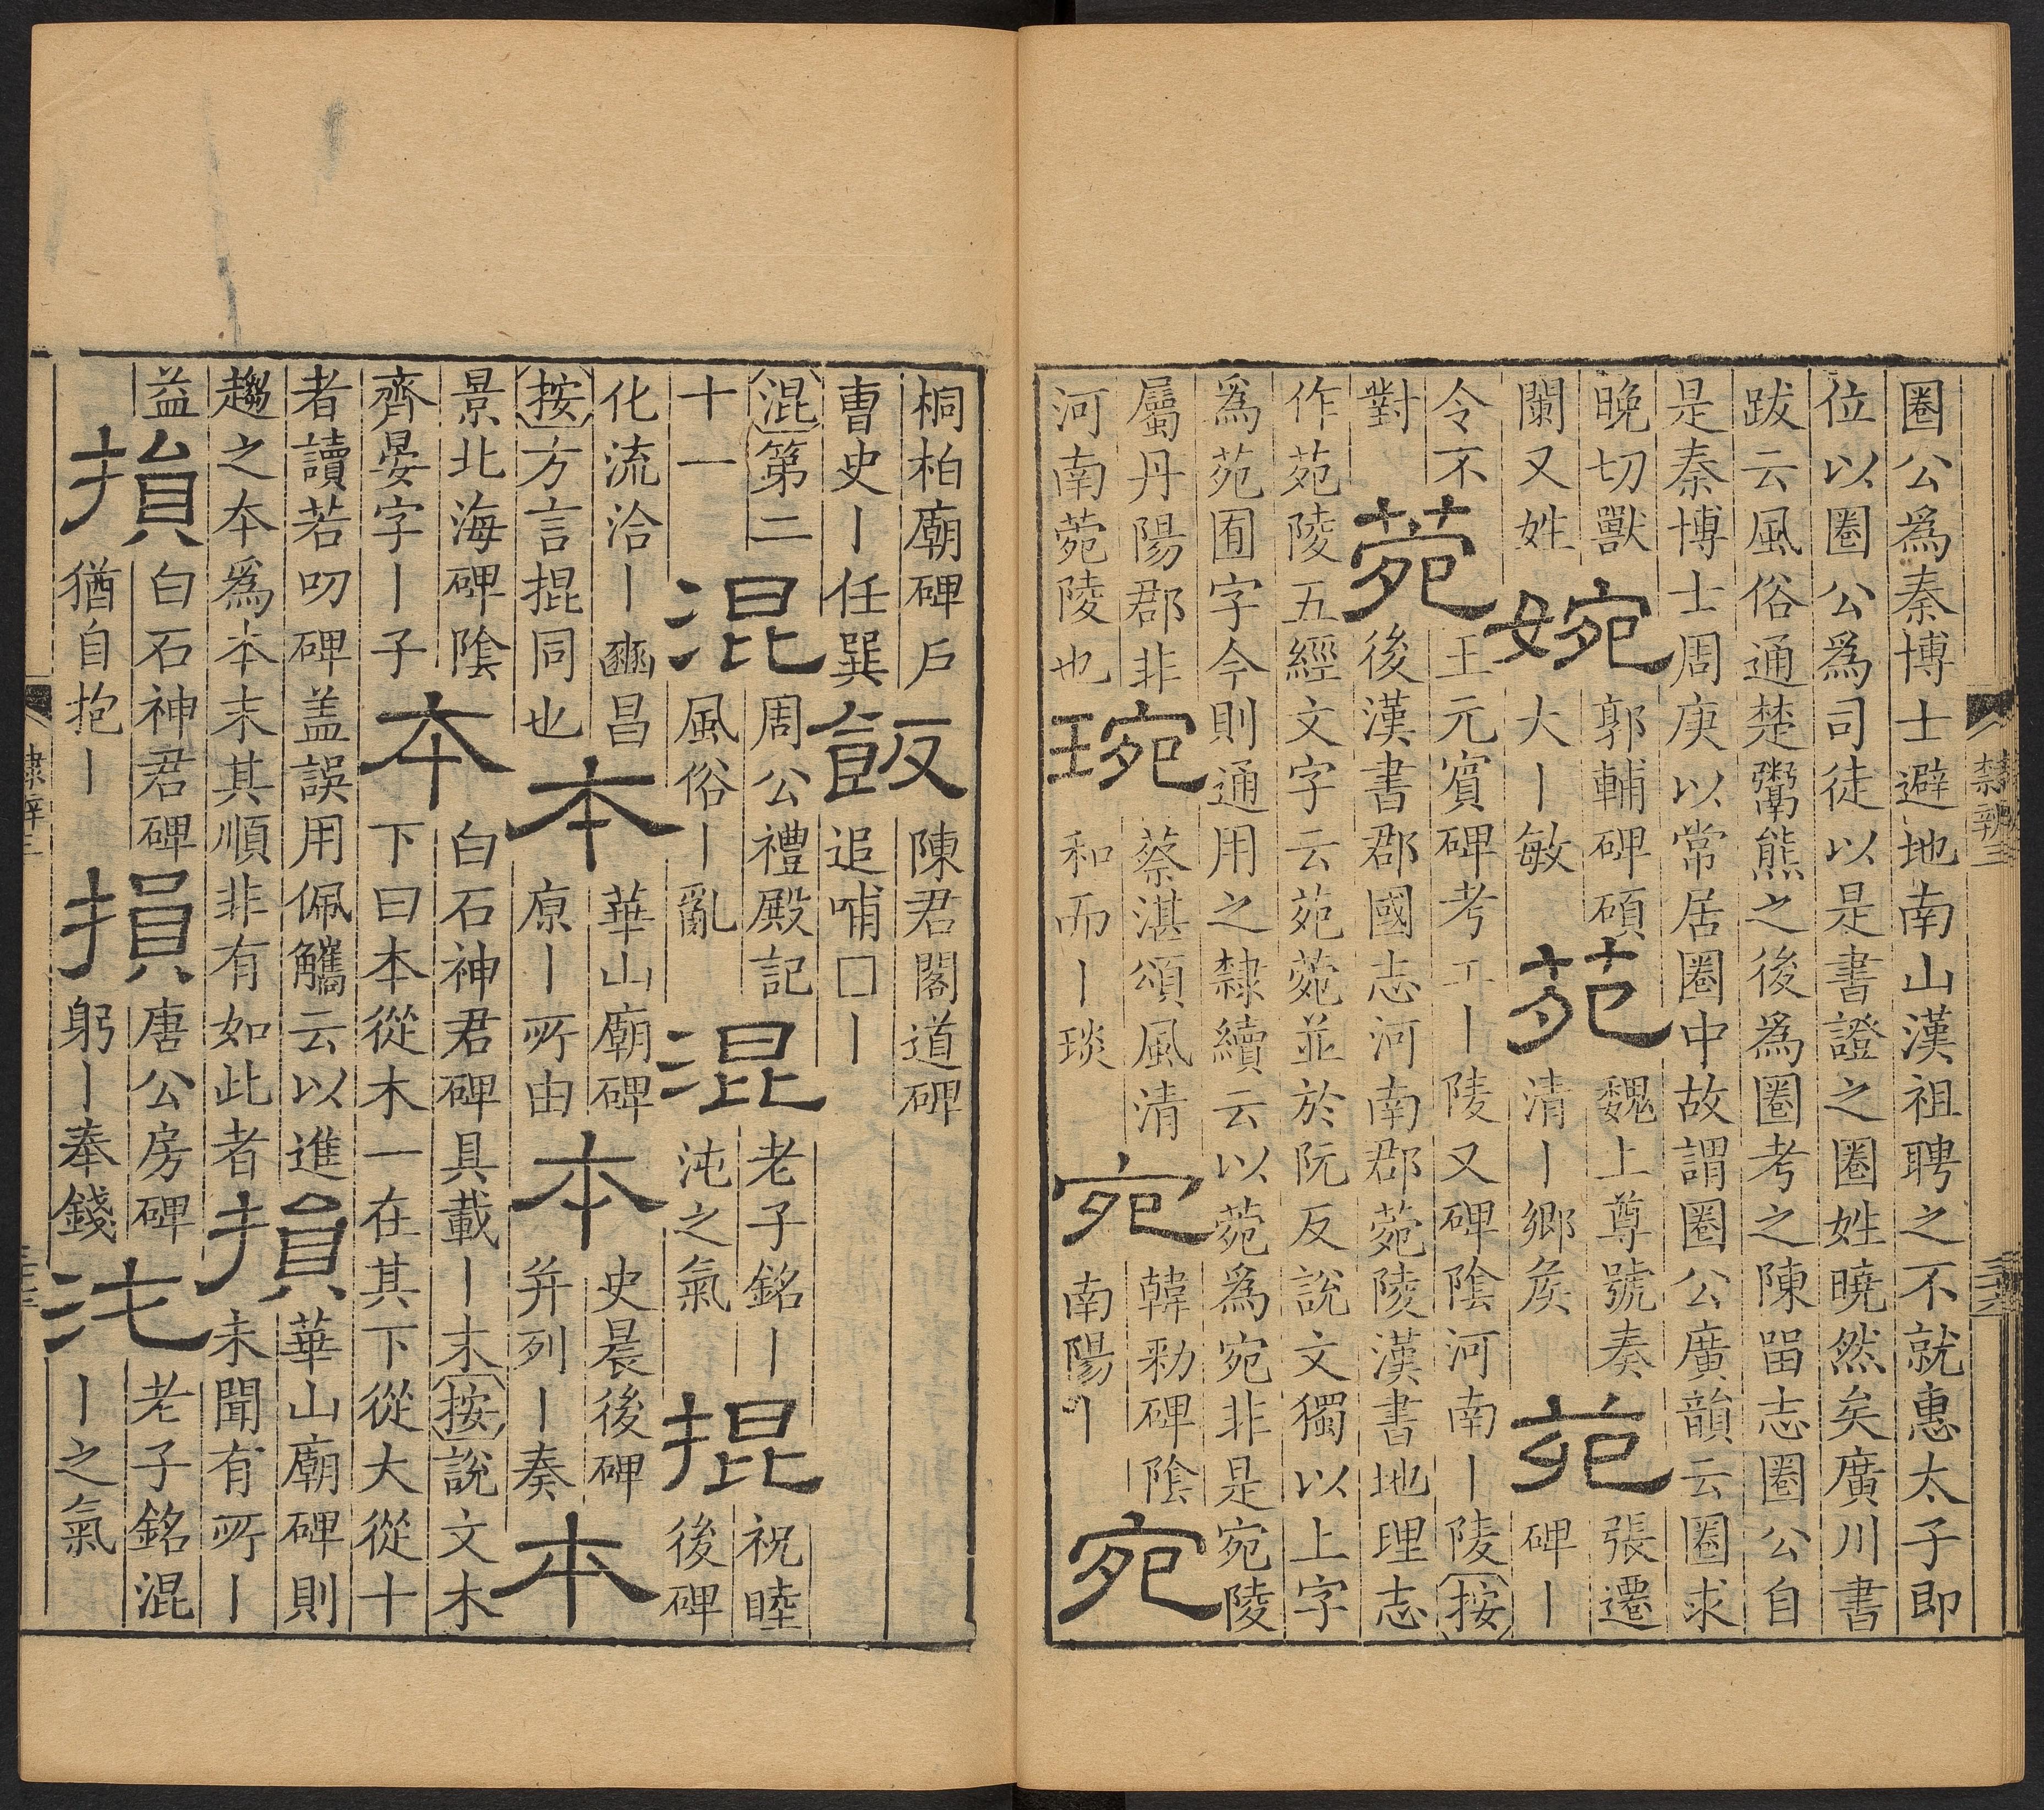 隸辨三
圈公爲秦博士避地南山漢祖聘之不就惠太子即
位以圈公爲司徒以是書證之圈姓曉然矣廣川書
跋云風俗通楚鬻熊之後爲圈考之陳畱志圈公自
是秦博士周庚以常居圈中故謂圈公廣韻云圈求
晚切獸
闌又姓
婉
郭輔碑碩
大丨敏
苑
魏上尊號奏
清丨鄉矦
苑
張遷
碑丨
令不
對
菀
王元賓碑考工丨陵又碑陰河南丨陵按
後漢書郡國志河南郡菀陵漢書地理志
作苑陵五經文字云苑菀並於阮反說文獨以上字
爲苑囿字今則通用之隸續云以菀爲宛非是宛陵
屬丹陽郡非
河南菀陵也
琬
蔡湛頌風清
和而丨琰
宛
韓勑碑陰
南陽丨
宛
桐柏廟碑戶
曹史丨任巽
飯
陳君閣道碑
追哺□丨
混第二
十一
混
周公禮殿記
風俗丨亂
混
老子銘丨
沌之氣
掍
祝睦
後碑
化流洽丨豳昌
按方言掍同也
本
華山廟碑
原丨所由
本
史晨後碑
并列丨奏
本
景北海碑陰
齊晏字丨子
夲
白石神君碑具載丨末按說文木
下曰本從木一在其下從大從十
者讀若叨碑蓋誤用佩觿云以進
趨之夲爲本末其順非有如此者
損
華山廟碑則
未聞有所丨
益
損
白石神君碑
猶自抱丨
損
唐公房碑
躬丨奉錢
沌
老子銘混
丨之氣
隸辨三